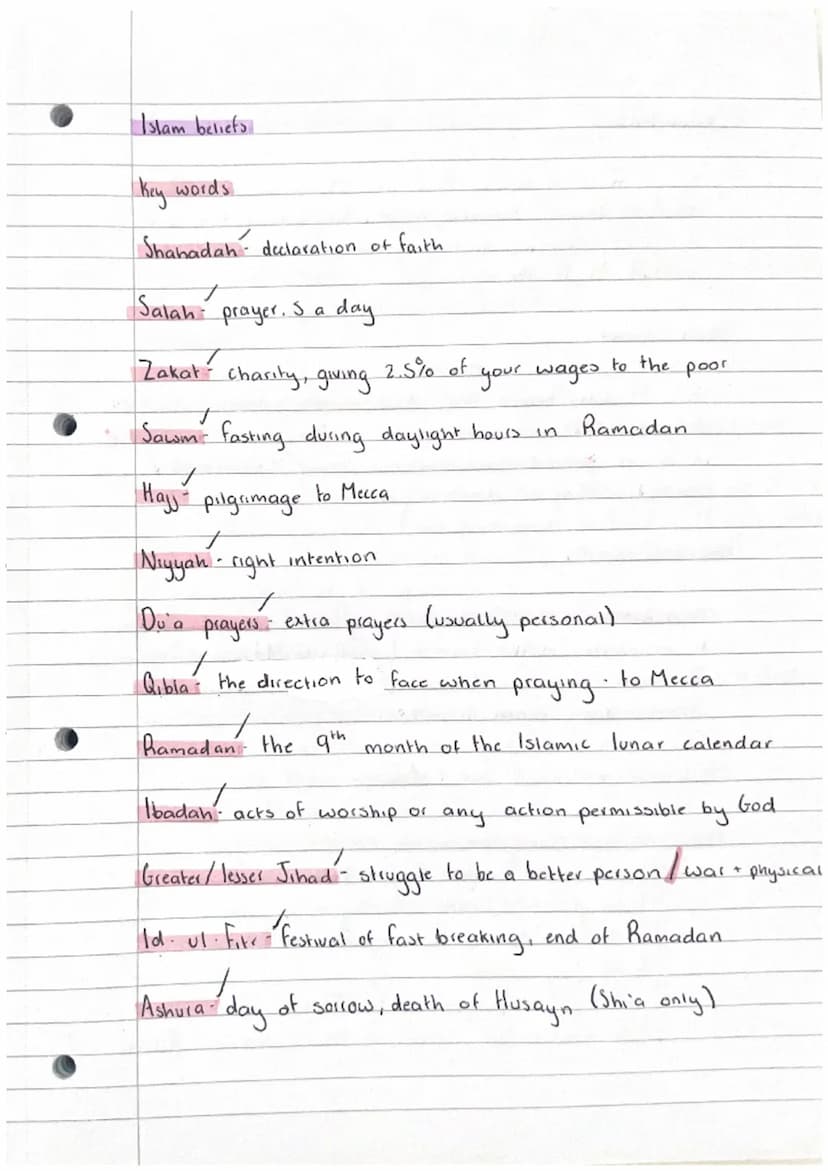 Islam beliefs
Key words
Shahadah - declaration of faith
Salah - prayer. 5 a day
Zakat - charity, giving 2.5% of your wages to the poor
Sawm - fasting during daylight hours in Ramadan
Hajj - pilgrimage to Mecca
Niyyah - right intention
Du'a prayers - extra prayers (usually personal)
Qibla - the direction to face when praying · to Mecca
Ramadan - the 9th month of the Islamic lunar calendar
Ibadah - acts of worship or any action permissible by God
Greater/lesser Jihad - struggle to be a better person / war + physical
Id-ul-Fitr - festival of fast breaking, end of Ramadan
Ashura - day of sorrow, death of Husayn (Shi'a only)